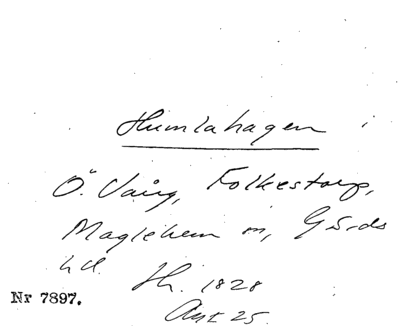 Humlahagen i
Ö. Vång, Folkestorp,
Maglehem sn, Gärds
hd. Sk. 1828
Akt 25.
Nr 7897.